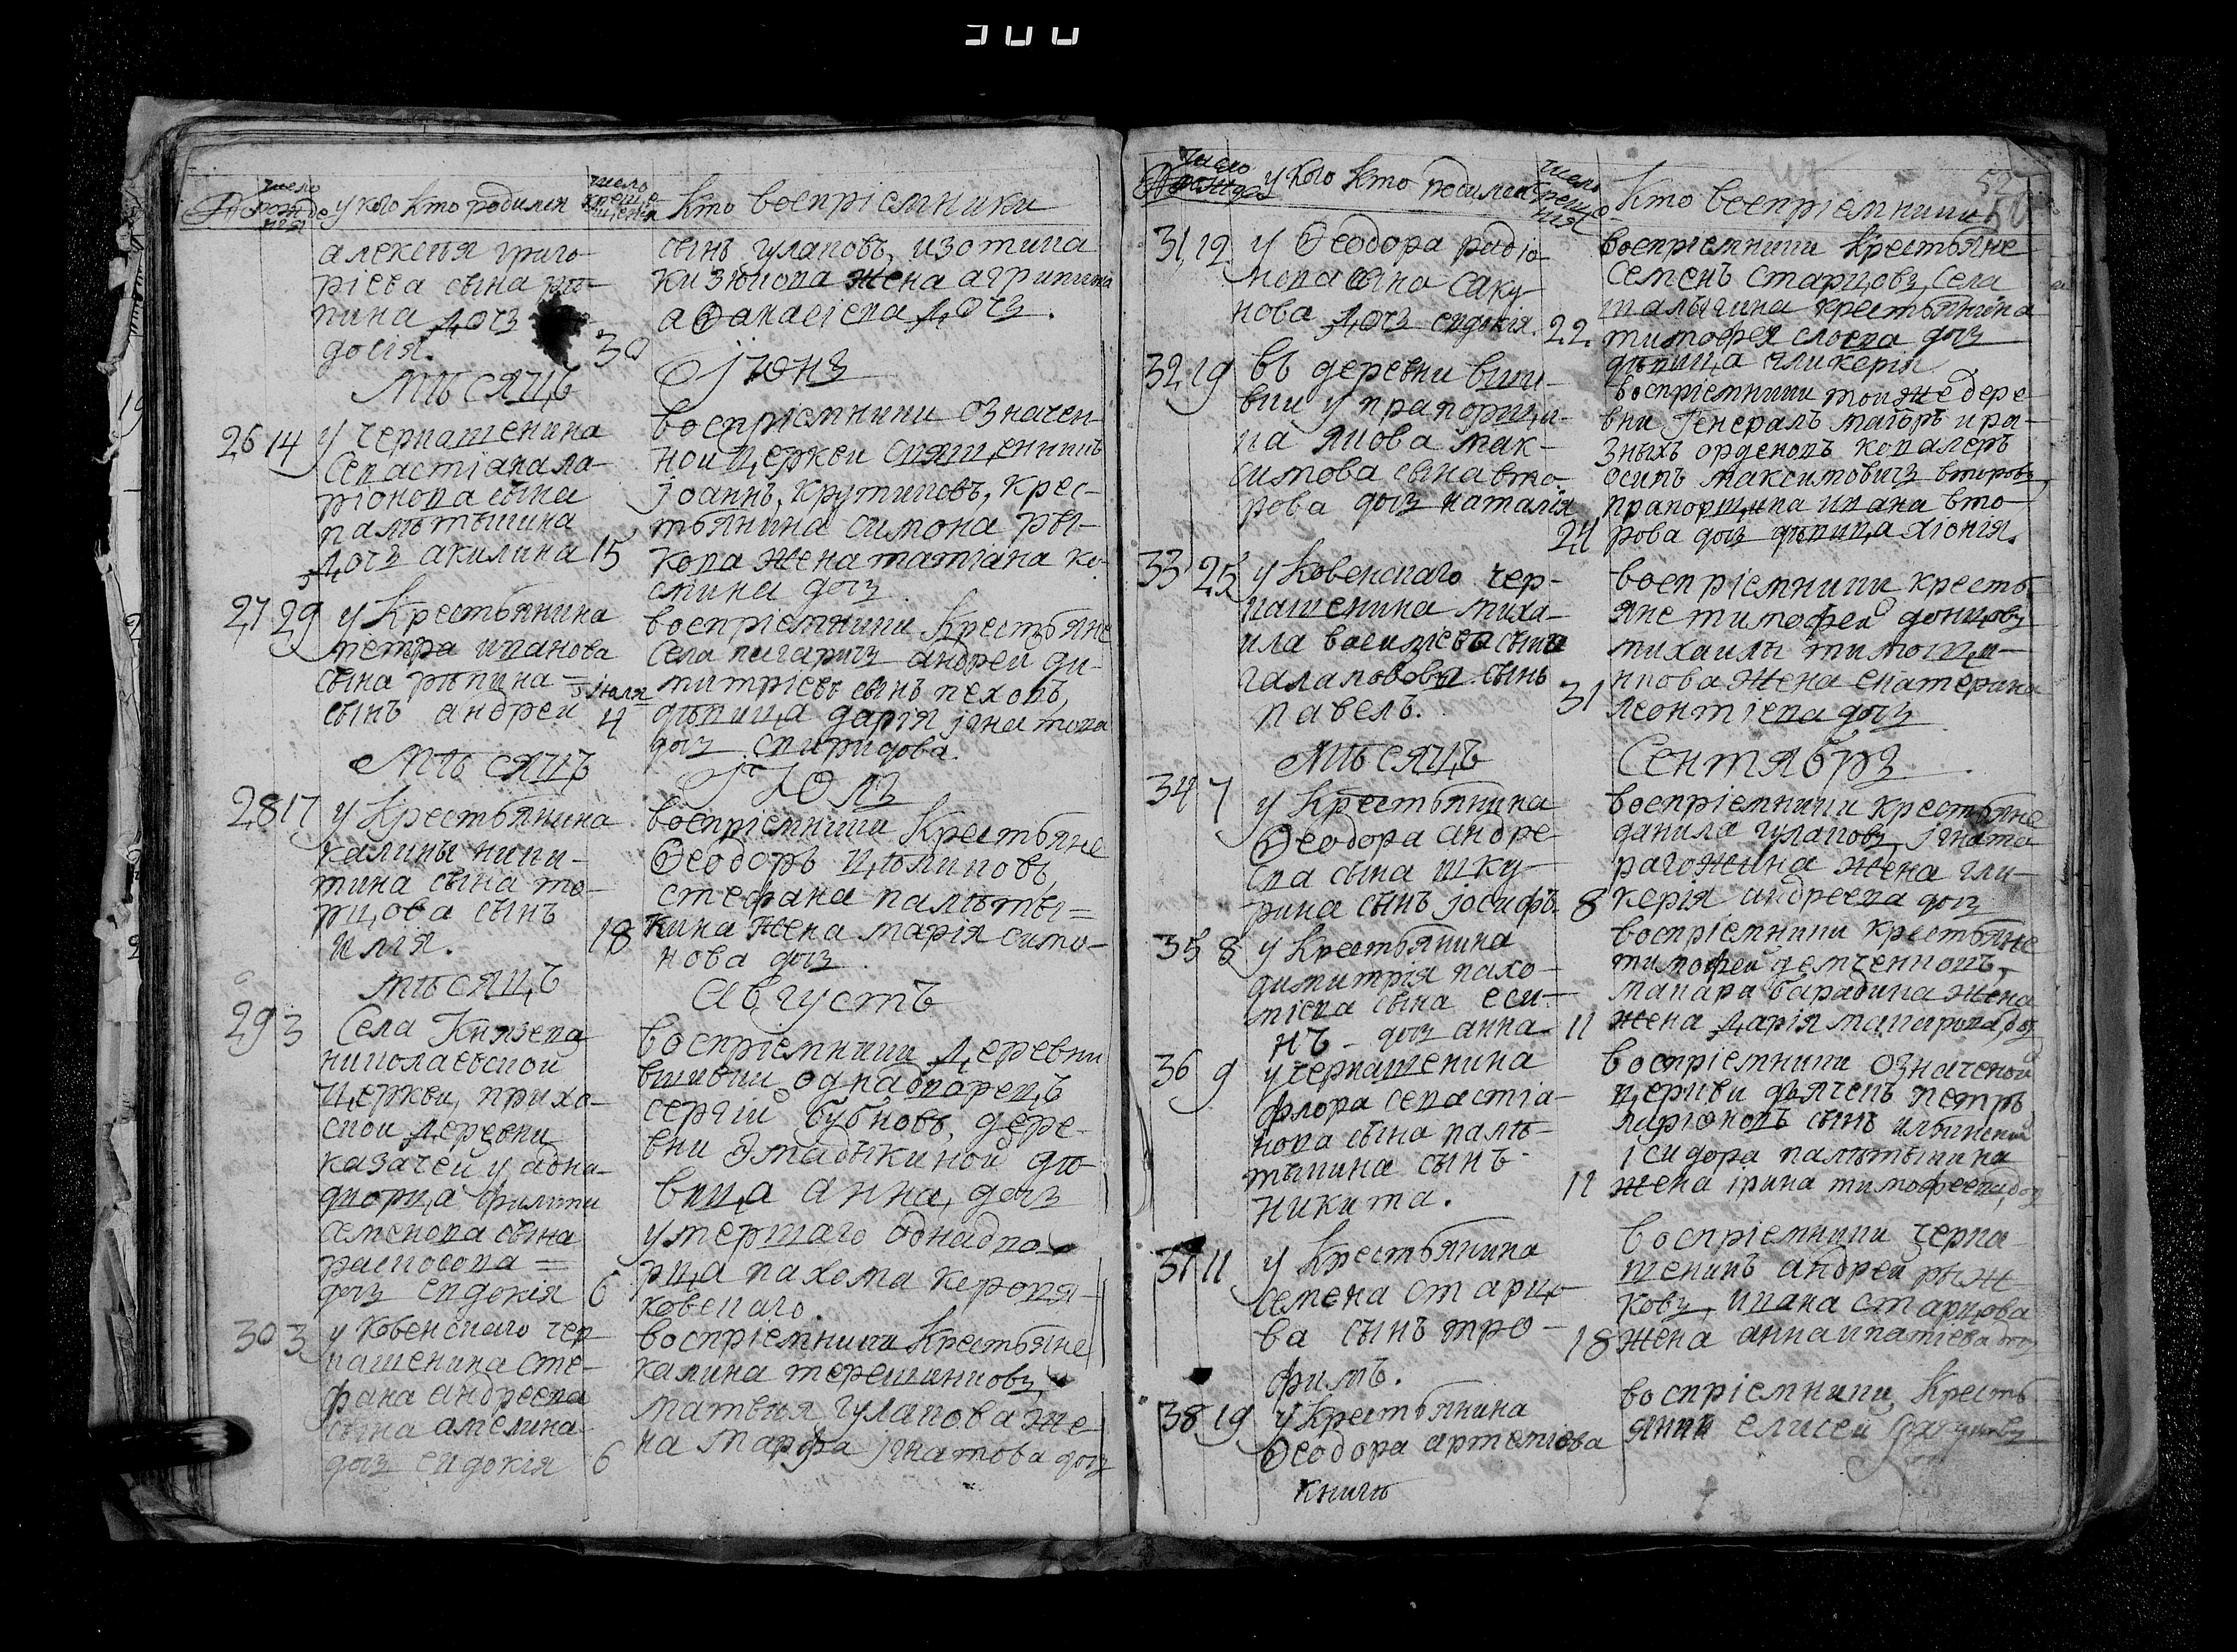 300
число рожде
нія
у кого кто родился
число
креще
щенія
кто воспріемники
алексѣя григо-
ріева сына рѣ-
пина дочь
досія. 30
сынъ гулаковъ, изотика
кизюкова жена агрипина
аѳанасіева дочь.
Мѣсяцъ Іюнь
26 14 у черкашенина
Севастіана ла-
ріонова сына
палътышина
дочь акилина 15
воспріемники означен-
ной церкви священникъ
Іоаннъ, крутиковъ, крес-
тьянина симона ры-
кова жена татіана ко-
смина дочь
27 29 у Крестьянина
петра иванова
сына рѣпина =
сынъ андрей іюля 4
воспріемники Крестьяне
села пигаричь андрей ди-
митріевъ сынъ пеховъ,
дѣвица дарія игнатова
дочь спиридова.
Мѣсяцъ Іюль
28 17 у Крестьянина
калины ники-
тина сына то-
рцова сынъ
илія. 18
воспріемники Крестьяне
Ѳеодоръ цѣликовъ,
стефана палъты=
кина жена марія симо-
нова дочь
мѣсяцъ Августъ
29 3 Села Князева
николаевской
церкви, прихо-
скои деревни
казачей у адна-
дворца филипа
семенова сына
расносова =
дочь евдокія 6
воспріемники деревни
вшивки однадворецъ
сергій бубновъ, дере-
вни Эмадыкиной дѣ-
вица анна, дочь
умершаго однадво-
рца пахома
ковскаго.
30 3 у Ковенскаго чер
кашенина сте-
фана андреева
сына амелина
дочь евдокія 6
воспріемники Крестьяне
калина терешинковъ,
матвѣя гулакова же-
на марфа игнатова дочь
число рожде
у кого кто родился
число
креще
нія
кто воспріемники
52
50
31 12 у Ѳеодора родіо-
нова сына саку-
нова дочь евдокія. 22
воспріемники крестьяне
семенъ старцовъ, села
шалыгина крестьянина
тимофея слоева дочь
дѣвица гликерія
32 19 въ деревни вши-
вки у прапорщи-
ка якова мак-
симова сына вто-
рова дочь наталія 24
воспріемники тоиже дере
вни Генералъ маіоръ и ра-
зныхъ орденовъ кавалеръ
осипъ максимовичь второвъ,
прапорщика ивана вто-
рова дочь дѣвица хіонія.
33 25 у Ковенскаго чер-
кашенина миха-
ила василіева сына
галаповова сынъ
павелъ. 31
воспріемники кресть
яне тимофей донцовъ
михаилы тимощи-
нкова жена екатерина
леонтіева дочь
Мѣсяцъ Сентябрь
34 7 у Крестьянина
Ѳеодора андре-
ева сына шку-
рина сынъ іосифъ. 8
воспріемники крестьяне
данила гулаковъ, игната
рагожина жена гли-
керія андреева дочь
35 8 у Крестьянина
димитрія пахо-
міева сына еси-
нъ - дочь анна 11
воспріемники крестьяне
тимофей демченковъ,
макара барабина жена
жена дарія макарова, дочь
36 9 у черкашенина
флора севастіа-
нова сына палъ-
тышина сынъ
никита. 11
воспріемники означеной
церкви дьячекъ петръ
ларіоновъ сынъ ильинскій
ісидора палътышина
жена ірина тимофеева, дочь
37 11 у Крестьянина
семена старцо-
ва сынъ тро-
фимъ. 18
воспріемники черка
шенинъ андрей рыж
ковъ, ивана старцова
жена анна игнатіева дочь
38 19 у Крестьянина
Ѳеодора артеміева
воспріемники, Кресть
янинъ елисей
книгъ